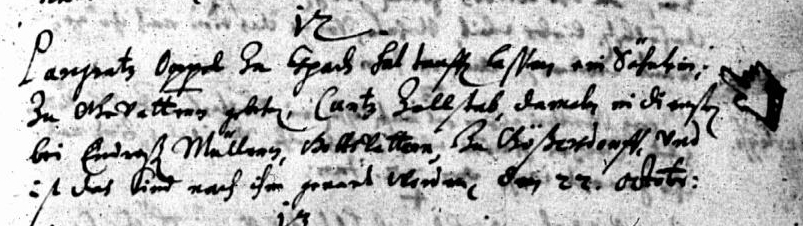 12
Pangratz Oppel Zu Spach hat tauffen lassen ein Söhnlein,
Zu gevattern gebeten, Cuntz Zollstab, damals in diensten
bei Endres Müllern, zu Gößerdorff, und
ist das Kind nach ihm genant worden, den 22. Octobr:
13